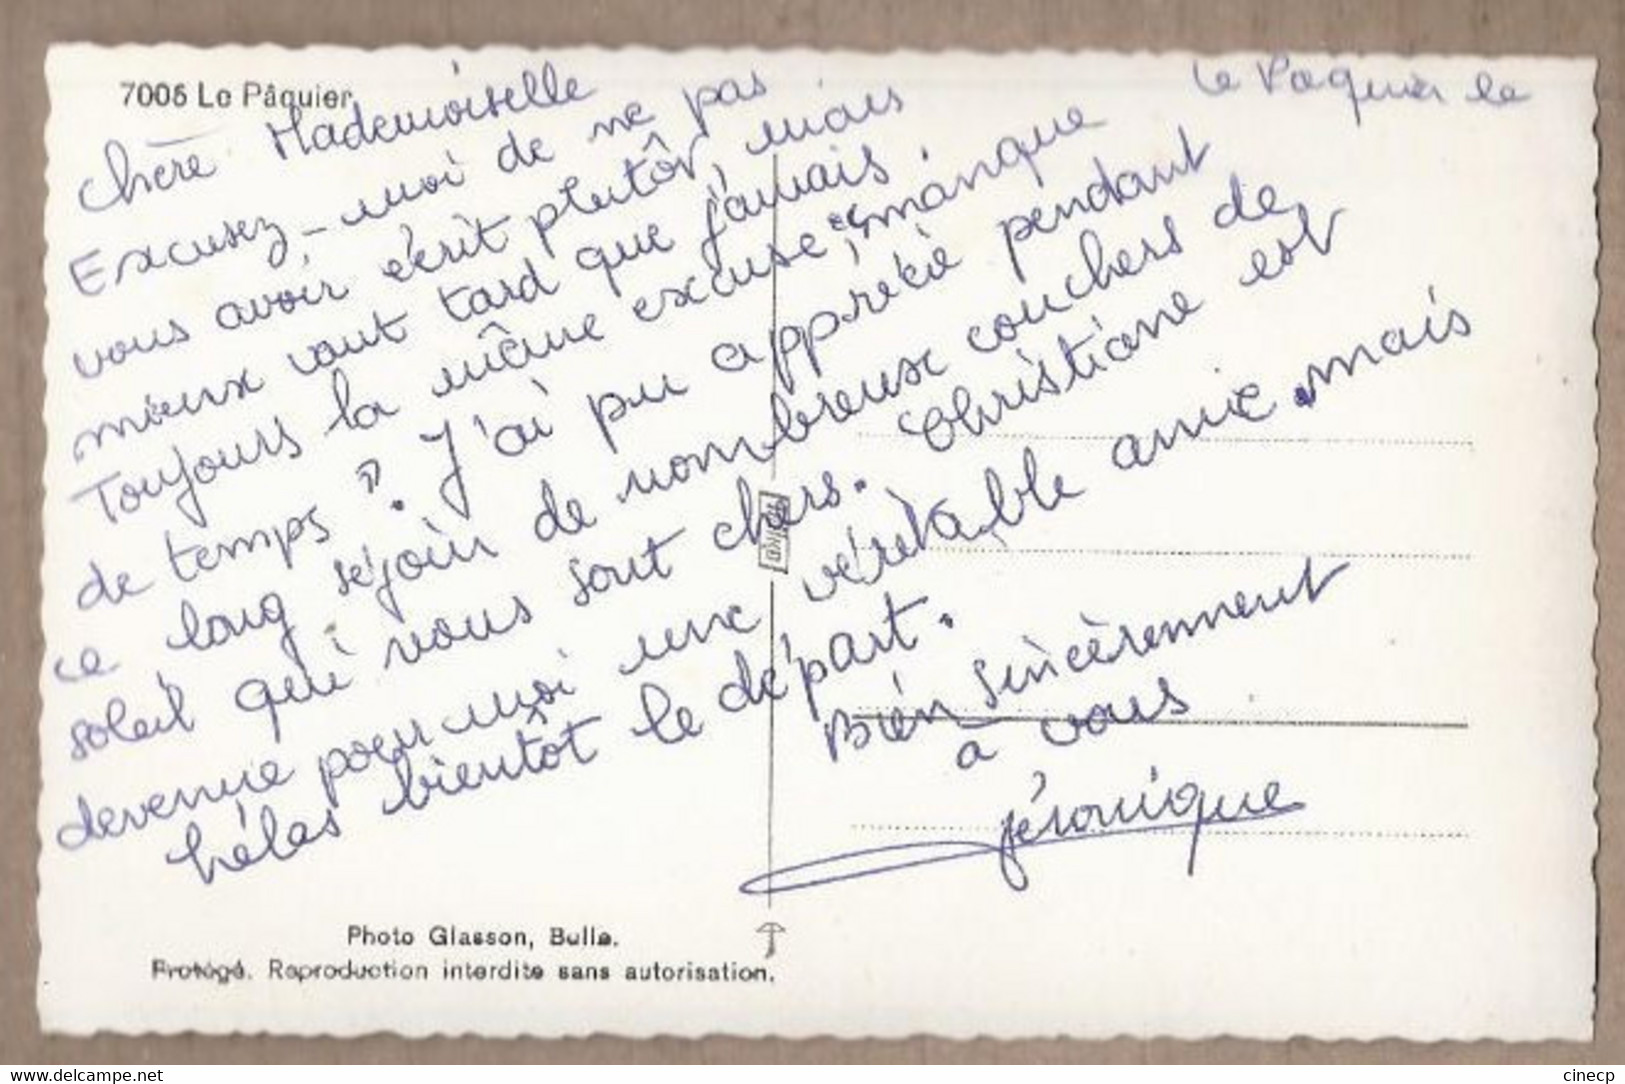 7006 Le Pâquier
Le Paquier le
Chère Mademoiselle
Excusez-moi de ne pas
vous avoir écrit plutôt, mais
mieux vaut tard que jamais
Toujours la même excuse "manque
de temps". J'ai pu apprécié pendant
ce long séjour de nombreux couchers de
soleil qui vous sont chers. Christiane est
devenue pour moi une véritable amie mais
hélas bientôt le départ.
Bien sincèrement
à vous
Véronique
Photo Glasson, Bulle.
Protégé. Reproduction interdite sans autorisation.
cinecp
https://www.delcampe.net